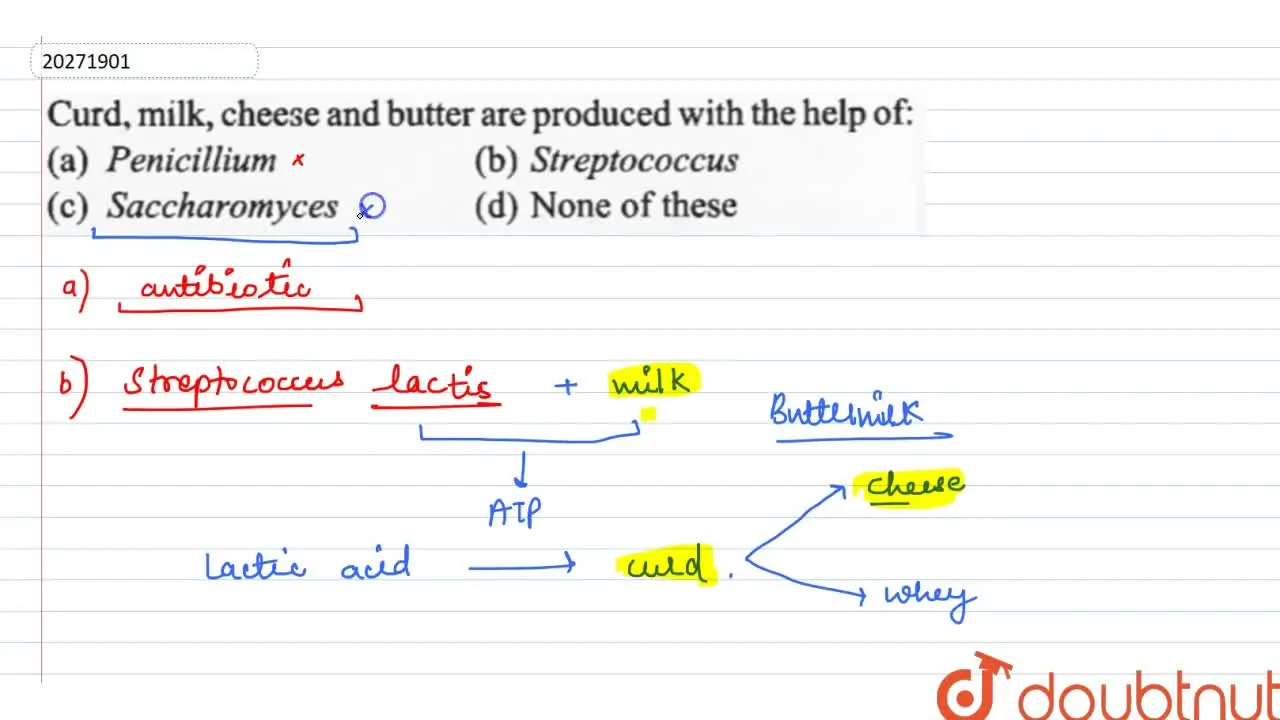 20271901
Curd, milk, cheese and butter are produced with the help of:
(a) Penicillium x (b) Streptococcus
(c) Saccharomyces x (d) None of these
a) antibiotic
b) Streptococcus lactis + milk
Buttermilk
cheese
ATP
Lactic acid → curd.
whey
doubtnut